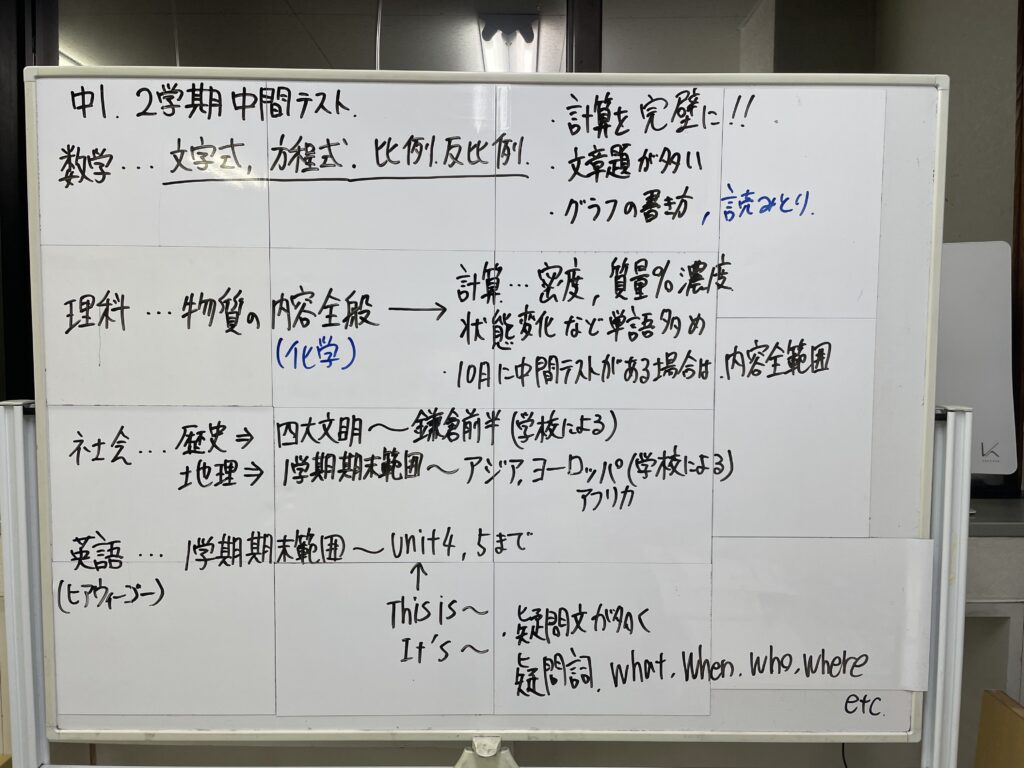 中1. 2学期中間テスト.
数学… 文字式, 方程式. 比例.反比例.
・計算を完璧に!!
・文章題が多い
・グラフの書き方, 読みとり.
理科…物質の内容全般 → 計算…密度, 質量%濃度
(化学)
状態変化など単語多め
・10月に中間テストがある場合は.内容全範囲
社会…歴史⇒ 四大文明〜鎌倉前半(学校による)
地理⇒ 1学期期末範囲〜アジア,ヨーロッパ(学校による)
アフリカ
英語… 1学期期末範囲〜unit4, 5まで
(ヒアウィーゴー)
↑
This is〜
It's〜
・疑問文が多く
疑問詞. what. When. who. where
etc.